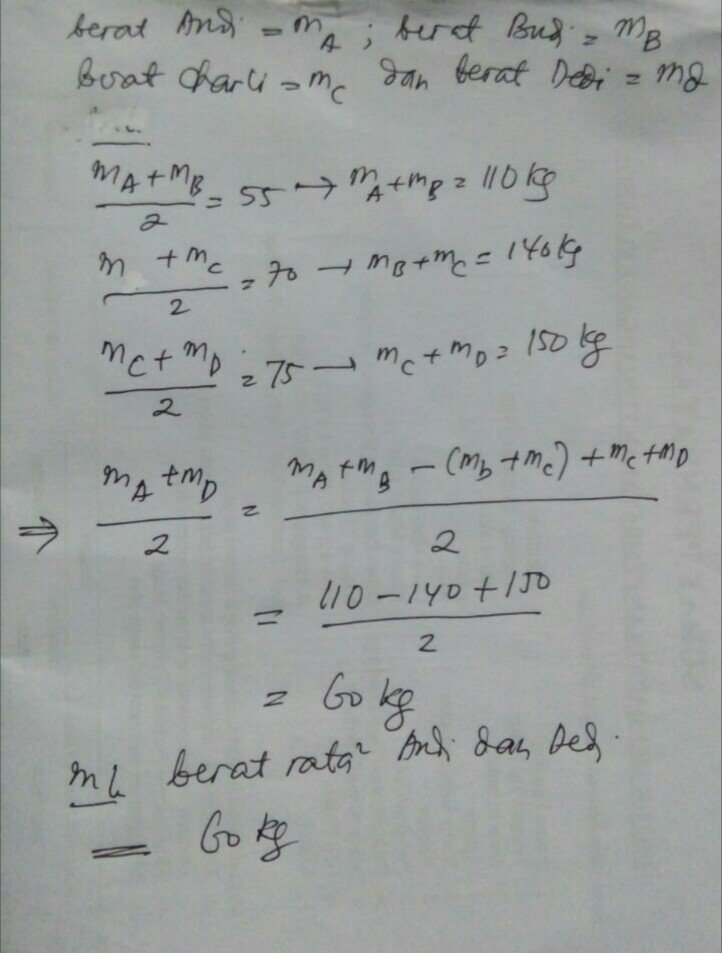 berat Andi = m_A ; berat Budi = m_B
berat Charli = m_C dan berat Dedi = md
(m_A + m_B)/2 = 55 → m_A + m_B = 110 kg
(m + m_C)/2 = 70 → m_B + m_C = 140 kg
(m_C + m_D)/2 = 75 → m_C + m_D = 150 kg
⇒ (m_A + m_D)/2 = (m_A + m_B - (m_b + m_C) + m_C + m_D)/2
= (110 - 140 + 150)/2
= 60 kg
berat rata² Andi dan Dedi
= 60 kg